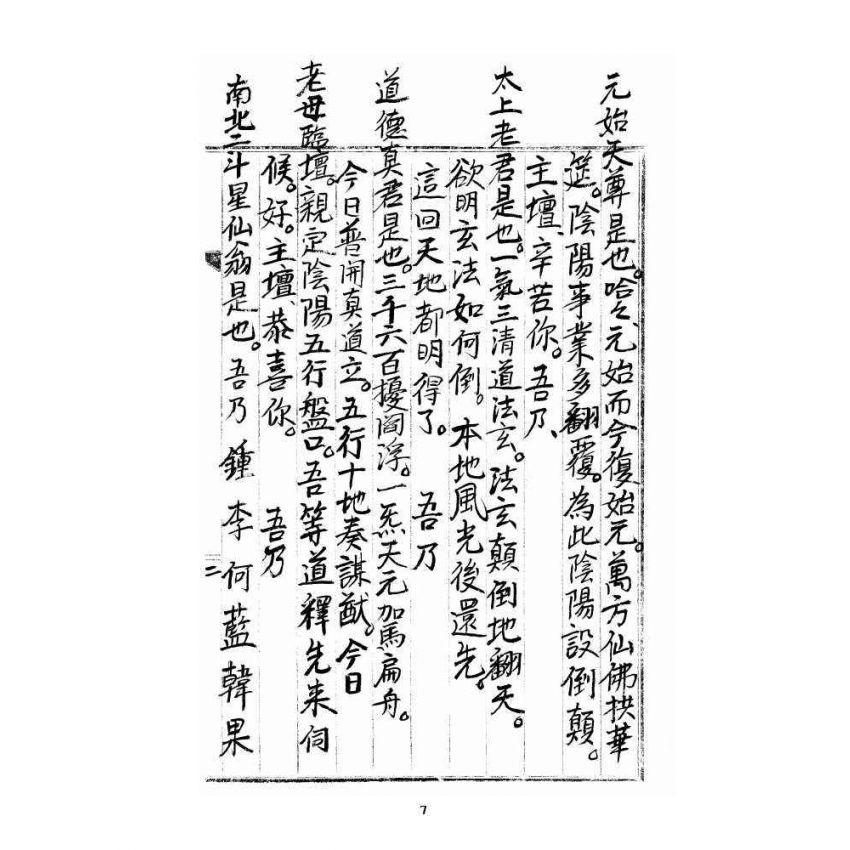 元始天尊是也。哈々元始而今復始元。萬方仙佛拱華
筵。陰陽事業多翻覆。為此陰陽設倒顛。
主壇、辛苦你。吾乃、
太上老君是也。一氣三清道法玄。法玄顛倒地翻天。
欲明玄法如何倒。本地風光後還先。
這回天地都明得了。吾乃
道德真君是也。三千六百擾閻浮。一炁天元駕扁舟。
今日普開真道立。五行十地奏謀猷。今日
老母臨壇。親定陰陽五行盤口。吾等道釋先來伺
候。好。主壇、恭喜你。吾乃
南北二斗星仙翁是也。吾乃鍾李何藍韓果
二
7